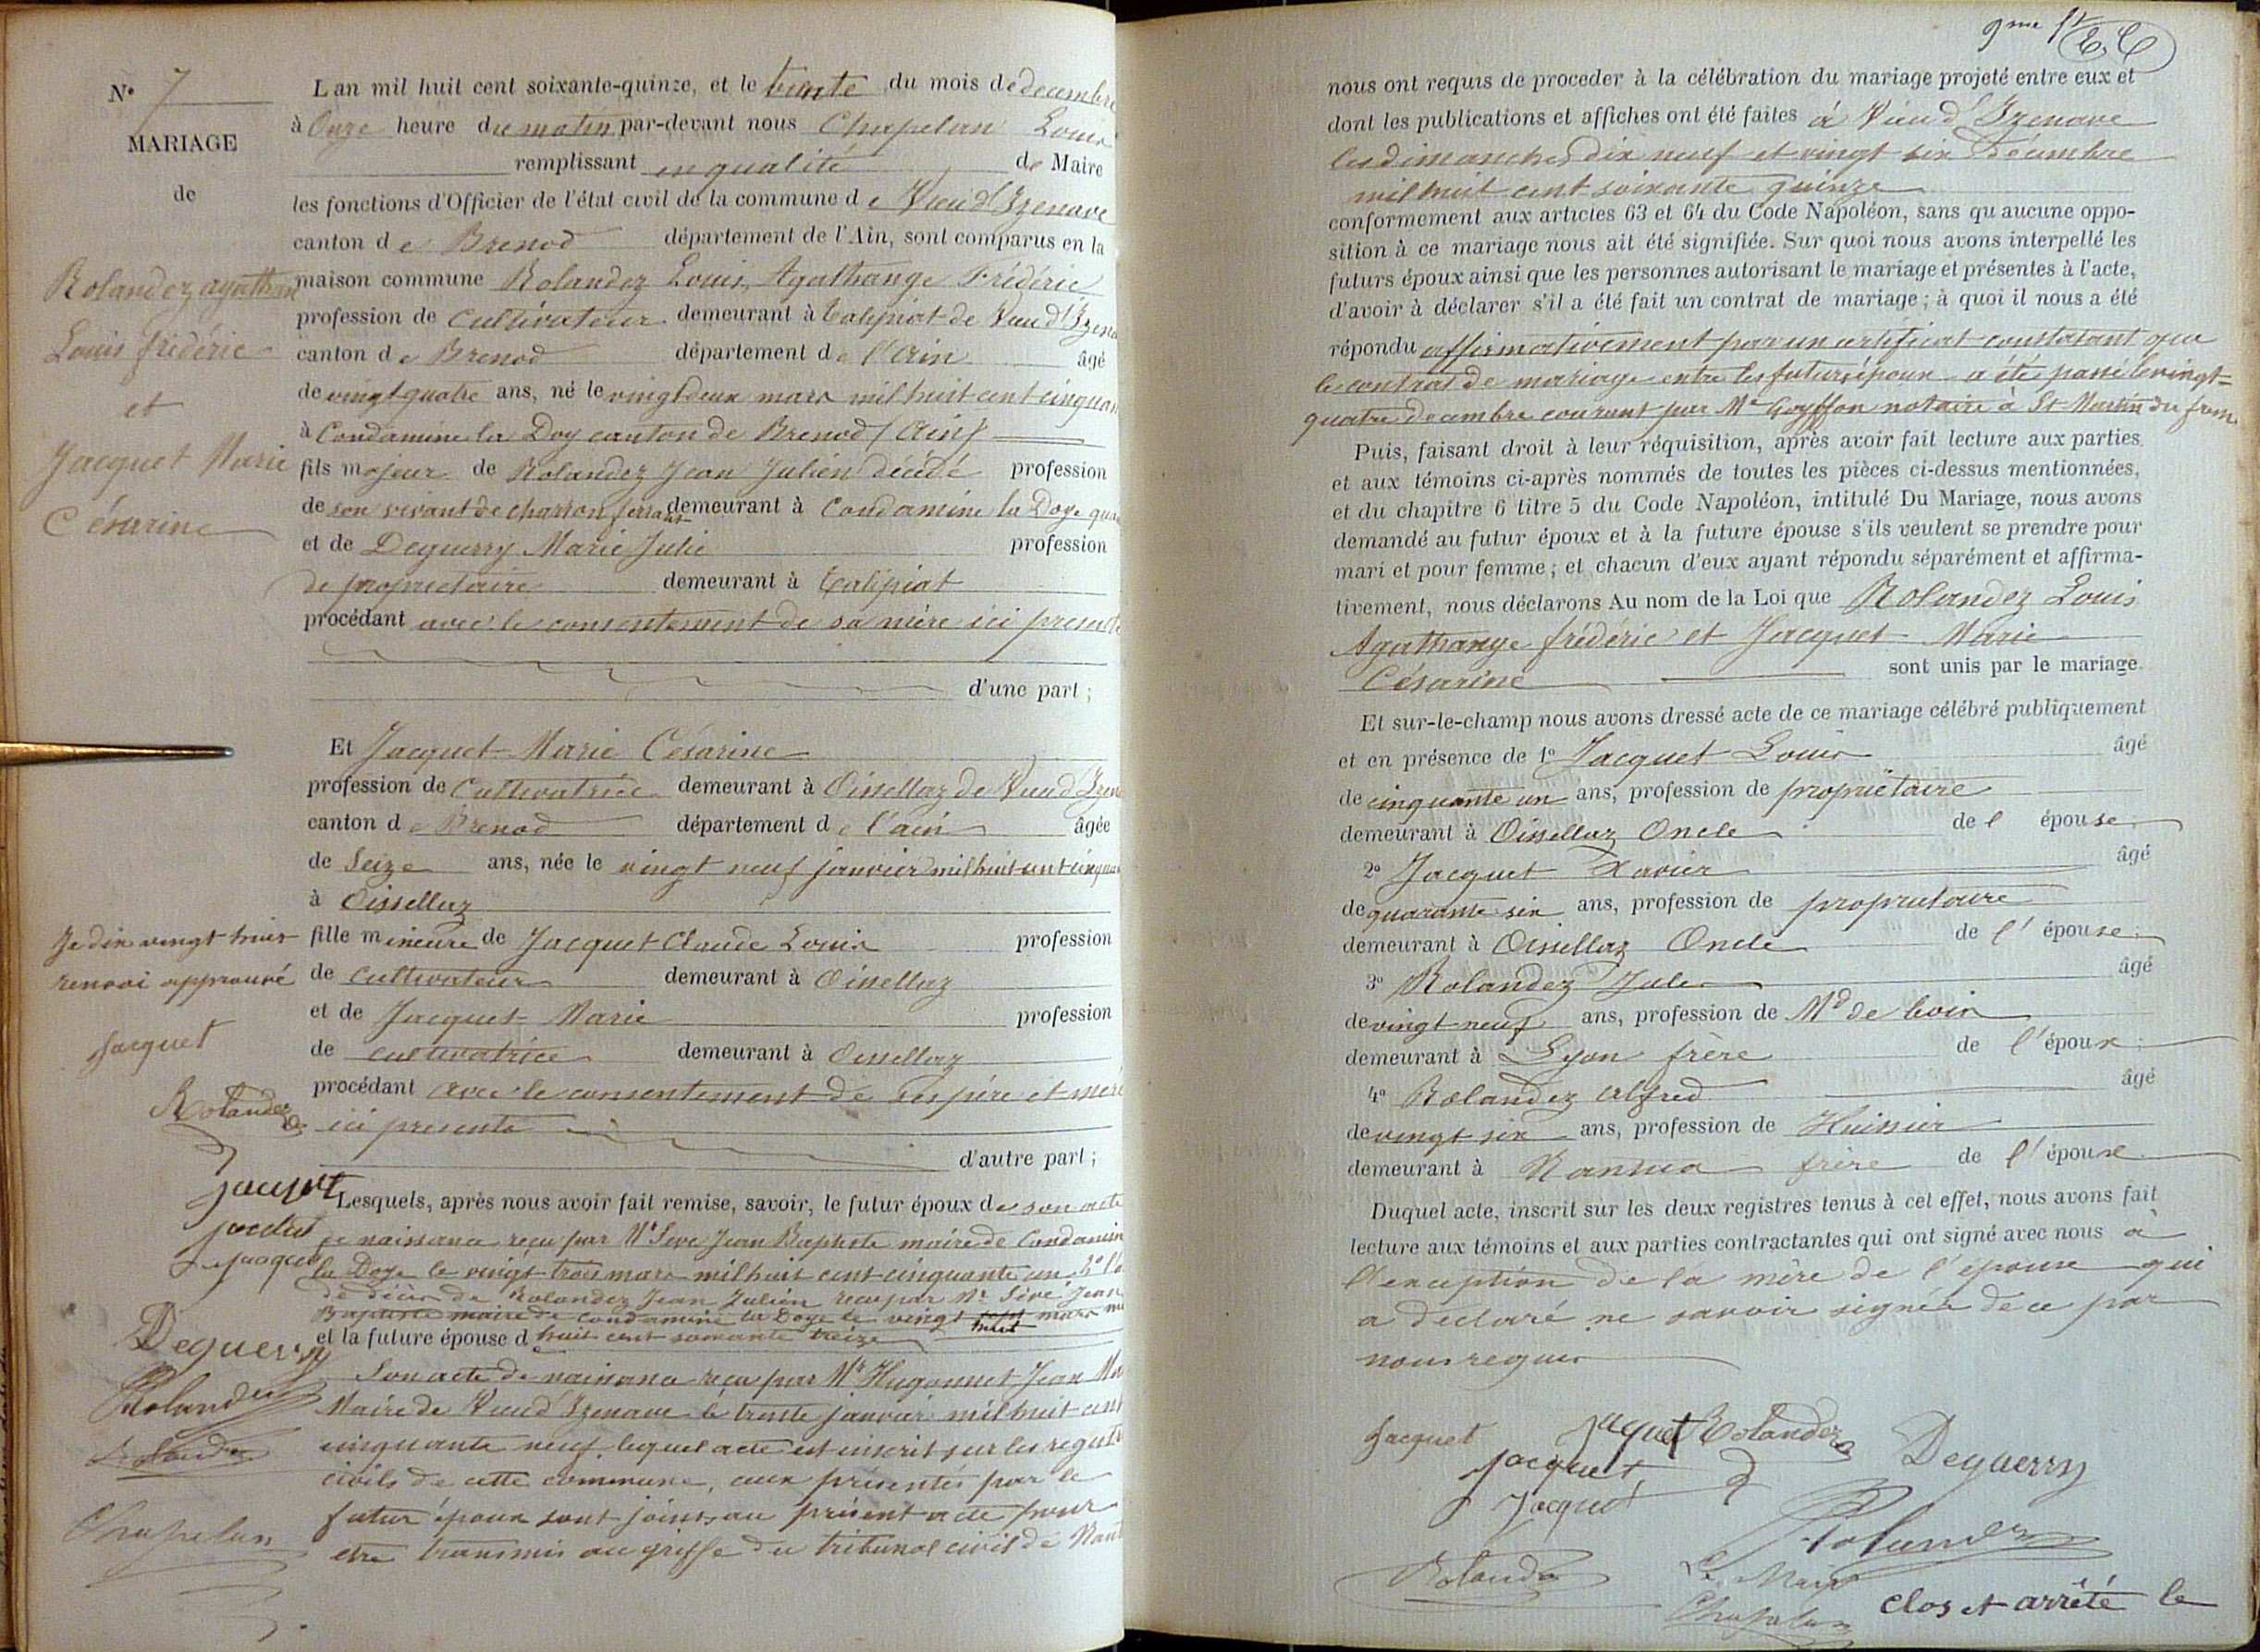 N° 7
MARIAGE
de
Rolandez agathan
Louis frédéric
et
Jacquet Marie
Césarine
L'an mil huit cent soixante-quinze, et le trente du mois de décembre
à Onze heure du matin par-devant nous Chapelan Louis
remplissant en qualité de Maire
les fonctions d'Officier de l'état civil de la commune de Vieu d'Izenave
canton de Brenod département de l'Ain, sont comparus en la
maison commune Rolandez Louis, Agathange Frédéric
profession de Cultivateur demeurant à Talipiat de Vieu d'Izena
canton de Brenod département de l'Ain âgé
de vingt quatre ans, né le vingt deux mars mil huit cent cinquan
à Condamine la Doy canton de Brenod (Ain)
fils majeur de Rolandez Jean Julien décédé profession
de son vivant de charron ferrant demeurant à Condamine la Doye quan
et de Deguerry Marie Julie profession
de propriétaire demeurant à Talipiat
procédant avec le consentement de sa mère ici présente
d'une part ;
Et Jacquet Marie Césarine
profession de Cultivatrice demeurant à Oissellaz de Vieu d'Izen
canton de Brenod département de l'ain âgée
de Seize ans, née le vingt neuf janvier mil huit cent cinquan
à Oissellaz
fille mineure de Jacquet Claude Louis profession
de cultivateur demeurant à Oissellaz
et de Jacquet Marie profession
de cultivatrice demeurant à Oissellaz
procédant avec le consentement de ses père et mère
ici présents
d'autre part ;
Je dis vingt huit
renvoi approuvé
Jacquet
Rolandez
Jacquet
Jacquet
Jacquet
Deguerry
Rolandez
Rolandez
Chapelan
Lesquels, après nous avoir fait remise, savoir, le futur époux de son acte
de naissance reçu par Mr Sève Jean Baptiste maire de Condamin
la Doye le vingt trois mars mil huit cent cinquante un 2° l'a
de décès de Rolandez Jean Julien reçu par Mr Sève Jean
Baptiste maire de Condamine la Doye le vingt huit mars mil
et la future épouse d huit cent soixante treize
Son acte de naissance reçu par Mr Hugonnet Jean Ma
Maire de Vieu d'Izenave le trente janvier mil huit cent
cinquante neuf lequel acte est inscrit sur les registr
civils de cette commune, ceux présentés par le
futur époux sont joints au présent acte pour
être transmis au griffe du tribunal civil de Nant
9me
nous ont requis de proceder à la célébration du mariage projeté entre eux et
dont les publications et affiches ont été faites à Vieu d'Izenave
les dimanches dix neuf et vingt six décembre
mil huit cent soixante quinze
conformement aux articles 63 et 64 du Code Napoléon, sans qu'aucune oppo-
sition à ce mariage nous ait été signifiée. Sur quoi nous avons interpellé les
futurs époux ainsi que les personnes autorisant le mariage et présentes à l'acte,
d'avoir à déclarer s'il a été fait un contrat de mariage ; à quoi il nous a été
répondu affirmativement par un certificat constatant que
le contrat de mariage entre les futurs époux a été passé le vingt=
quatre decembre courant par Me Goyffon notaire à St Martin du fren.
Puis, faisant droit à leur réquisition, après avoir fait lecture aux parties
et aux témoins ci-après nommés de toutes les pièces ci-dessus mentionnées,
et du chapitre 6 titre 5 du Code Napoléon, intitulé Du Mariage, nous avons
demandé au futur époux et à la future épouse s'ils veulent se prendre pour
mari et pour femme ; et chacun d'eux ayant répondu séparément et affirma-
tivement, nous déclarons Au nom de la Loi que Rolandez Louis
Agathange frédéric et Jacquet Marie
Césarine sont unis par le mariage.
Et sur-le-champ nous avons dressé acte de ce mariage célébré publiquement
et en présence de 1° Jacquet Louis âgé
de cinquante un ans, profession de propriétaire
demeurant à Oissellaz Oncle de l'épouse ;
2° Jacquet Xavier âgé
de quarante six ans, profession de propriétaire
demeurant à Oissellaz Oncle de l'épouse ;
3° Rolandez Jules âgé
de vingt neuf ans, profession de Md de bois
demeurant à Lyon frère de l'époux ;
4° Rolandez Alfred âgé
de vingt six ans, profession de Huissier
demeurant à Nantua frère de l'épouse
Duquel acte, inscrit sur les deux registres tenus à cet effet, nous avons fait
lecture aux témoins et aux parties contractantes qui ont signé avec nous à
l'exception de la mère de l'épouse qui
a déclaré ne savoir signer de ce par
nous requis
Jacquet Jacquet Rolandez Deguerry
Jacquet
Jacquet
Rolandez
Rolandez
Le Maire
Chapelan
clos et arrêté le